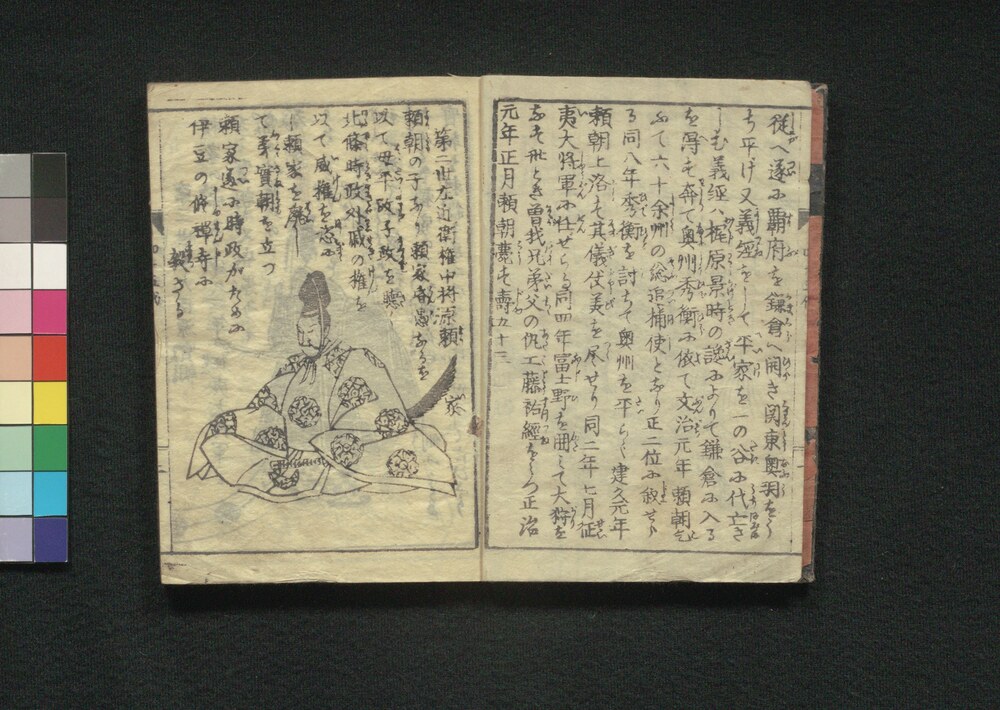 従へ遂に覇府を鎌倉へ開き関東奥羽を
ち平げ又義經をして平家を一の谷に代亡さ
しむ義經ハ梶原景時の讒により て鎌倉に入る
を得も奔て奥州秀衡に依て文治元年頼朝
ふて六十余州の総追捕使となり正二位に叙せら
る同八年秀衡を討ちて奥州を平らく建久元年
頼朝上洛も其儀伏美を尽せり同二年七月征
夷大将軍に任せらる同四年冨士野を囲して大狩を
なも此とき曽我兄弟父の仇工藤祐經をうつ正治
元年正月頼朝薨も壽五十三
第二世左近衛権中将源頼家
頼朝の子なり頼家
以て母平政子政を聴
北條時政外戚の権を
以て威権を恣に
頼家を廃し
て弟實朝を立つ
頼家遂に時政がために
伊豆の修禅寺に
弑さる